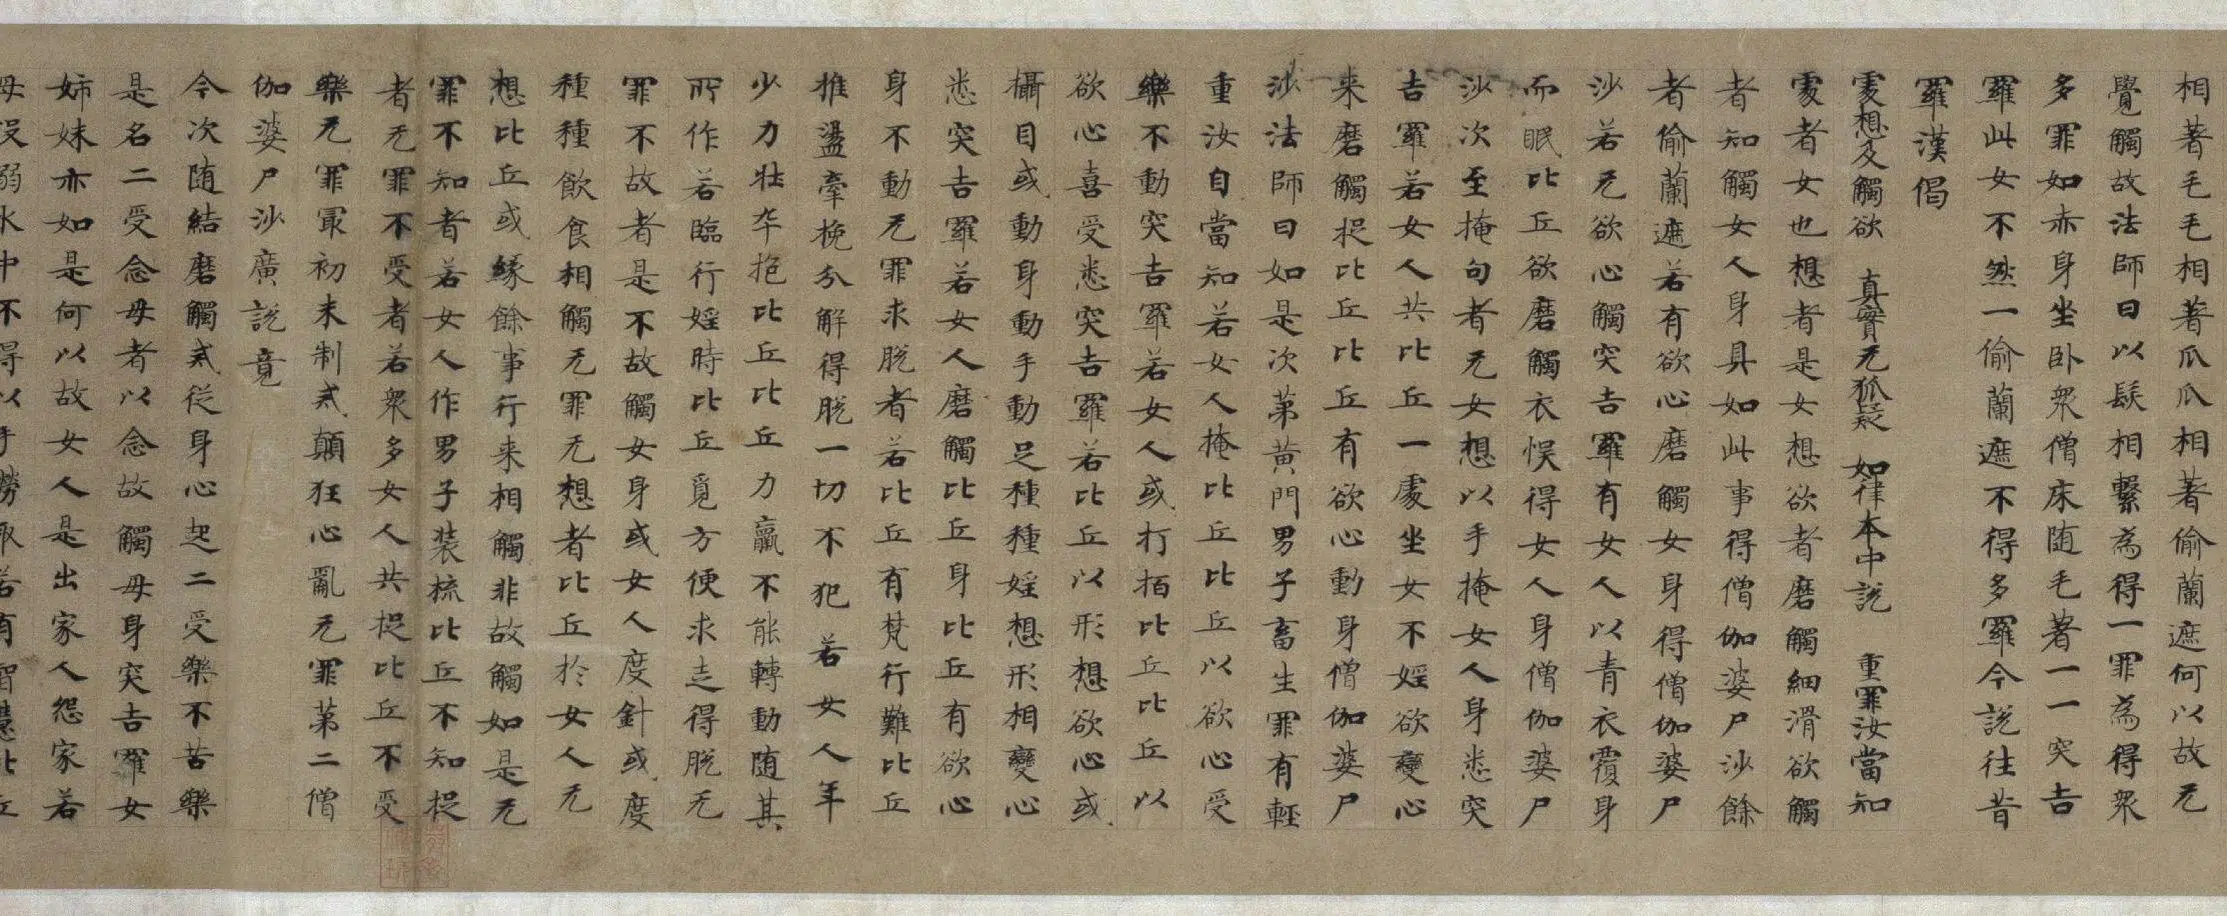 相著毛毛相著爪爪相著偷蘭遮何以故无
覺觸故法師曰以髮相繫為得一罪為得衆
多罪如亦身坐臥衆僧床随毛著一一突吉
羅此女不然一偷蘭遮不得多罪今說往昔
羅漢偈
䖏想及觸欲 真實无狐疑 如律本中說 重罪汝當知
䖏者女也想者是女想欲者磨觸細滑欲觸
者知觸女人身具如此事得僧伽婆尸沙餘
者偷蘭遮若有欲心磨觸女身得僧伽婆尸
沙若无欲心觸突吉羅有女人以青衣覆身
而眠比丘欲磨觸衣悮得女人身僧伽婆尸
沙次至掩句者无女想以手掩女人身悉突
吉羅若女人共比丘一䖏坐女不婬欲變心
来磨觸捉比丘比丘有欲心動身僧伽婆尸
沙法師曰如是次第黄門男子畜生罪有輕
重汝自當知若女人掩比丘比丘以欲心受
樂不動突吉羅若女人或打拍比丘比丘以
欲心喜受悉突吉羅若比丘以形想欲心或
攝目或動身動手動足種種婬想形相變心
悉突吉羅若女人磨觸比丘身比丘有欲心
身不動无罪求脫者若比丘有梵行難比丘
推盪牽挽分解得脫一切不犯 若女人年
少力壮卒抱比丘比丘力羸不能轉動随其
所作若臨行婬時比丘覓方便求走得脫无
罪不故者是不故觸女身或女人度針或度
種種飲食相觸无罪无想者比丘扵女人无
想比丘或緣餘事行来相觸非故觸如是无
罪不知者若女人作男子装梳比丘不知捉
者无罪不受者若衆多女人共捉比丘不受
樂无罪冣初未制戒顛狂心亂无罪第二僧
伽婆尸沙廣說竟
今次随結磨觸戒從身心起二受樂不苦樂
是名二受念母者以念故觸母身突吉羅女
姉妹亦如是何以故女人是出家人怨家若
母没溺水中不得以手撈取若有智慧比丘